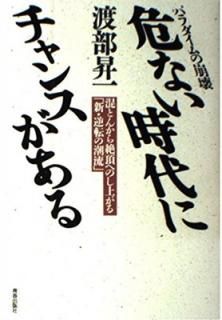 パラダイムの崩壊
危ない時代に
チャンスがある
渡部昇一
混とんから絶頂へのし上がる
「新・逆転の潮流」
青春出版社